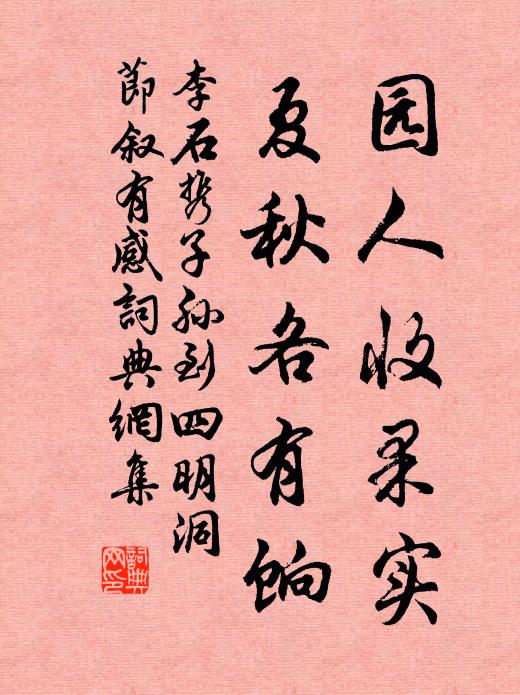 园人收果实
夏秋各有饷
李石携子孙到四明洞
節叙有感詞典網集
詞典网印